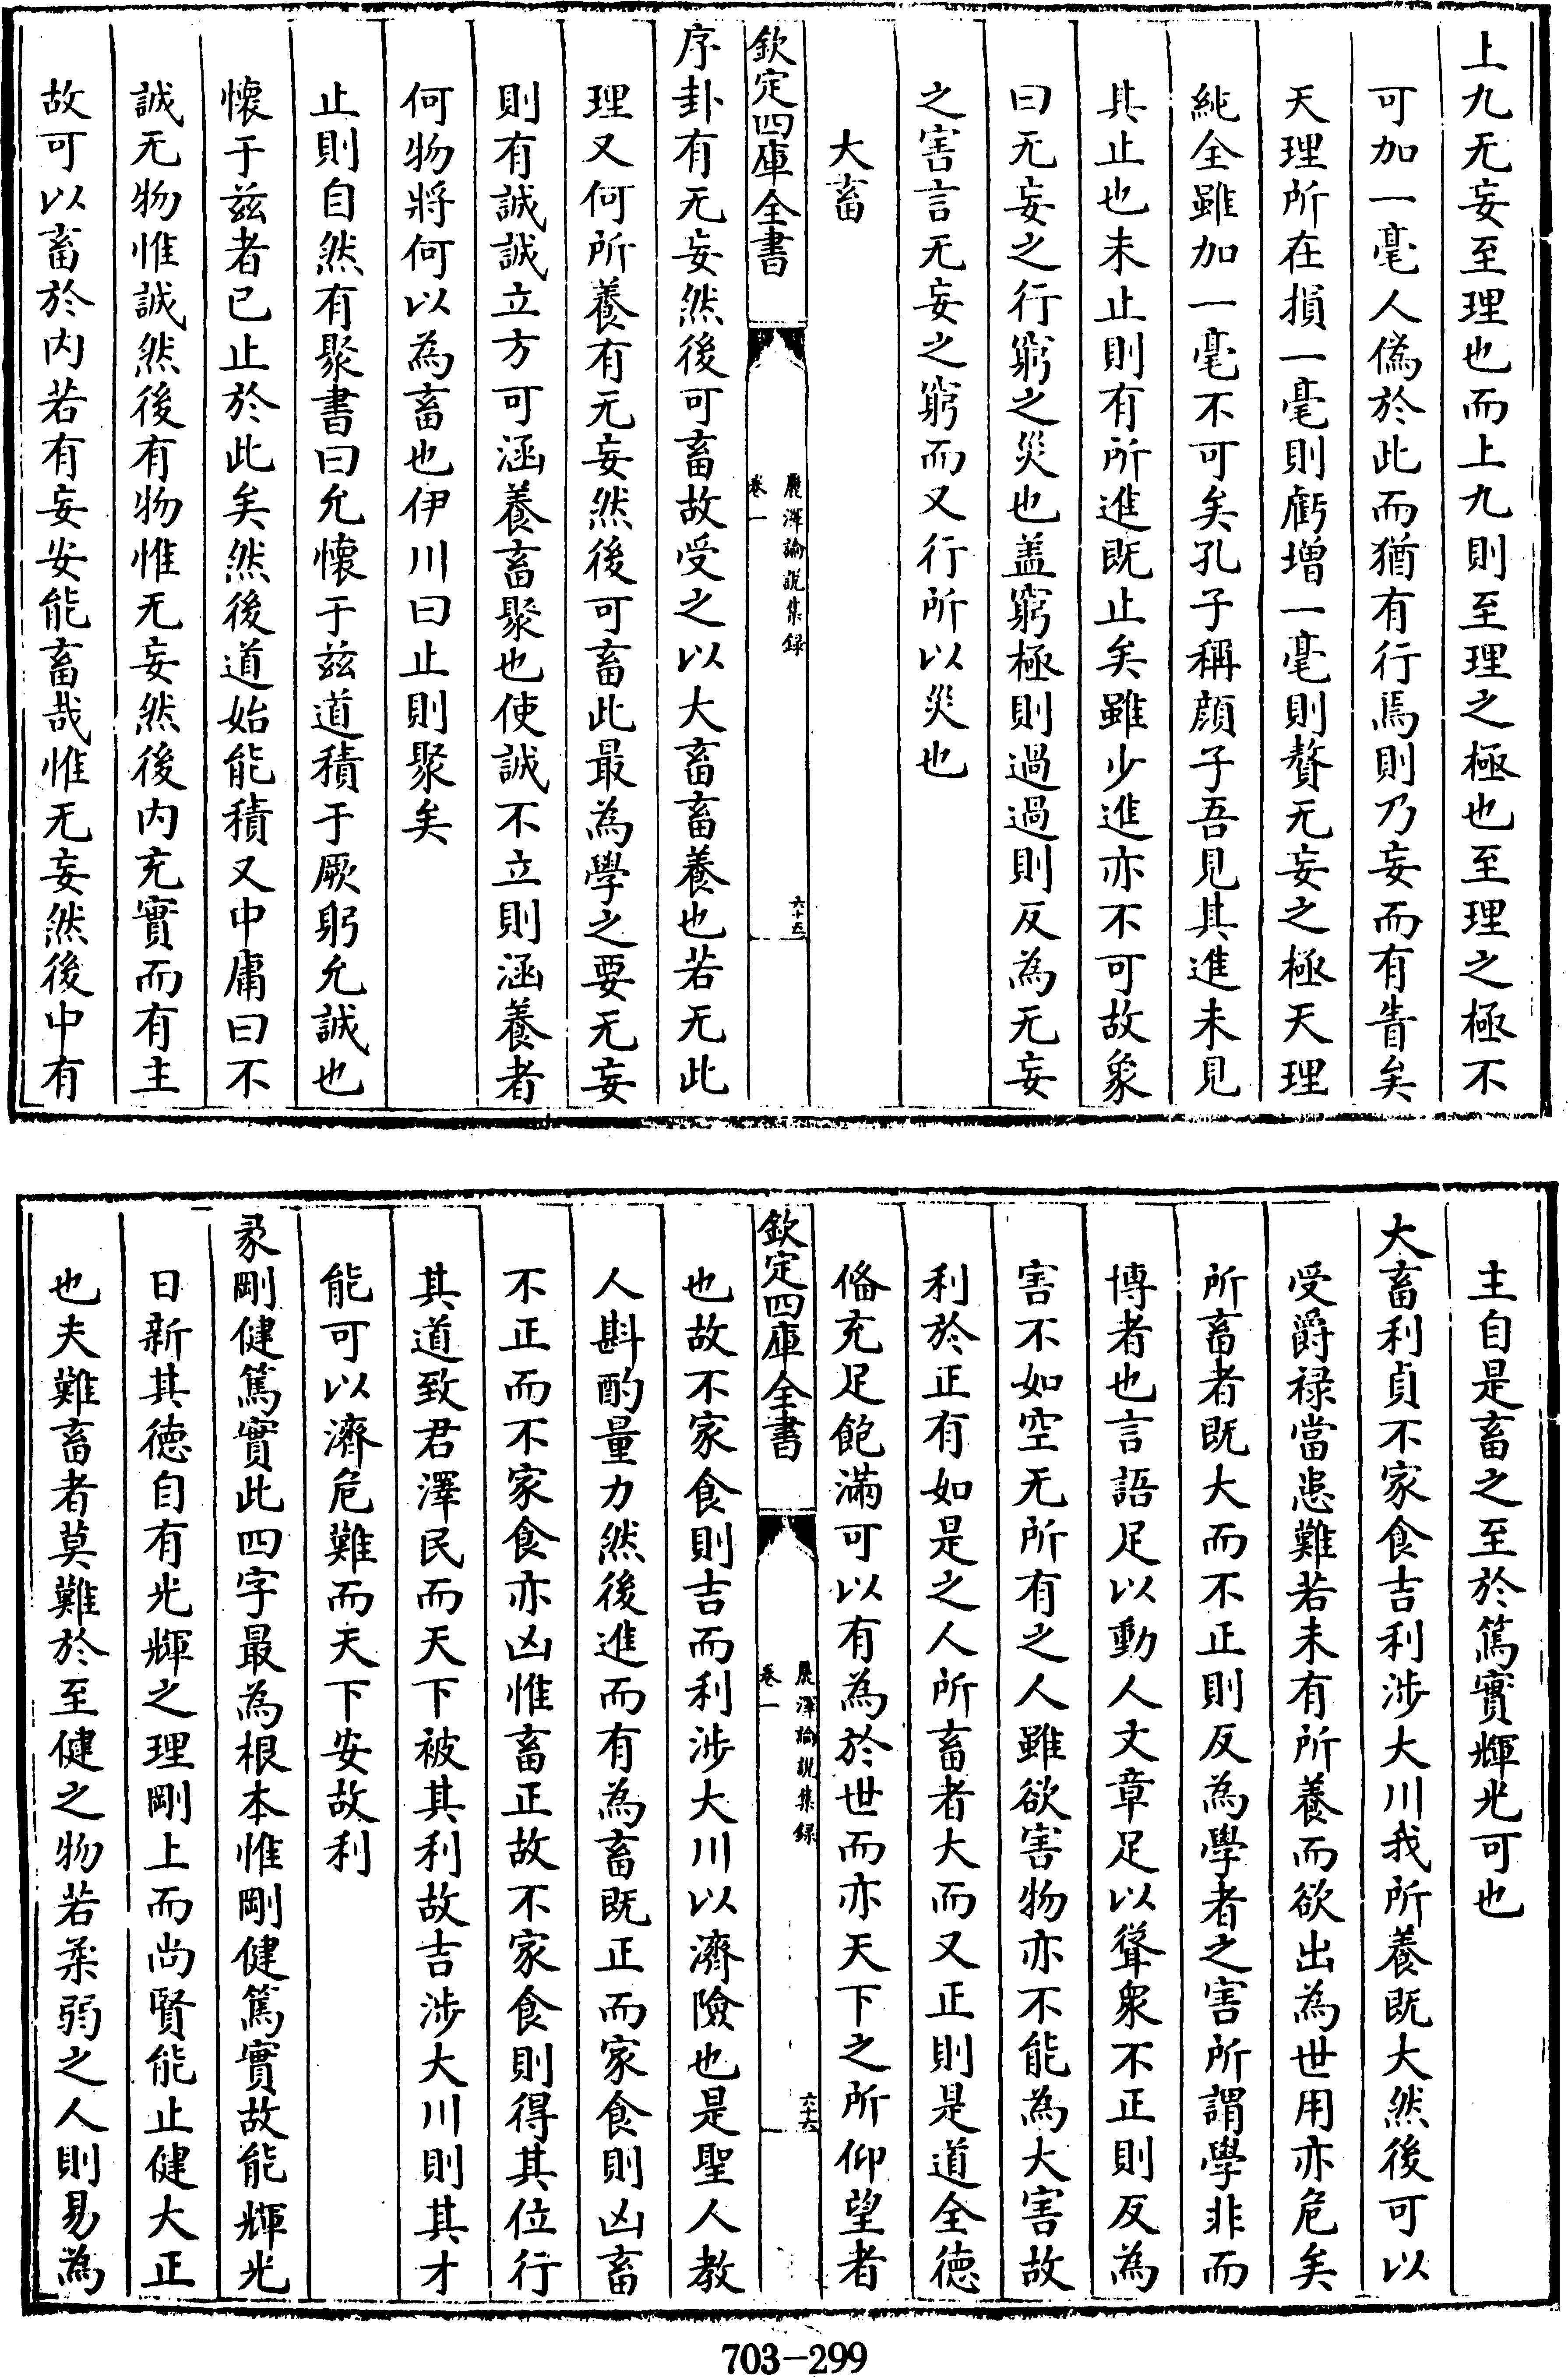 上九无妄至理也而上九則至理之極也至理之極不
可加一毫人偽於此而猶有行焉則乃妄而有眚矣
天理所在損一毫則虧增一毫則贅无妄之極天理
純全雖加一毫不可矣孔子稱顔子吾見其進未見
其止也未止則有所進既止矣雖少進亦不可故象
曰无妄之行窮之災也盖窮極則過過則反為无妄
之害言无妄之窮而又行所以災也
大畜
欽定四庫全書
麗澤論說集録
卷一
六十五
序卦有无妄然後可畜故受之以大畜畜養也若无此
理又何所養有无妄然後可畜此最為學之要无妄
則有誠誠立方可涵養畜聚也使誠不立則涵養者
何物將何以為畜也伊川曰止則聚矣
止則自然有聚書曰允懷于兹道積于厥躬允誠也
懷于兹者已止於此矣然後道始能積又中庸曰不
誠无物惟誠然後有物惟无妄然後内充實而有主
故可以畜於内若有妄安能畜哉惟无妄然後中有
主自是畜之至於篤實輝光可也
大畜利貞不家食吉利涉大川我所養既大然後可以
受爵禄當患難若未有所養而欲出為世用亦危矣
所畜者既大而不正則反為學者之害所謂學非而
博者也言語足以動人文章足以聳衆不正則反為
害不如空无所有之人雖欲害物亦不能為大害故
利於正有如是之人所畜者大而又正則是道全徳
俻充足飽滿可以有為於世而亦天下之所仰望者
欽定四庫全書
麗澤論說集録
卷一
六十六
也故不家食則吉而利涉大川以濟險也是聖人教
人斟酌量力然後進而有為畜既正而家食則凶畜
不正而不家食亦凶惟畜正故不家食則得其位行
其道致君澤民而天下被其利故吉涉大川則其才
能可以濟危難而天下安故利
彖剛健篤實此四字最為根本惟剛健篤實故能輝光
日新其徳自有光輝之理剛上而尚賢能止健大正
也夫難畜者莫難於至健之物若柔弱之人則易為
703-299